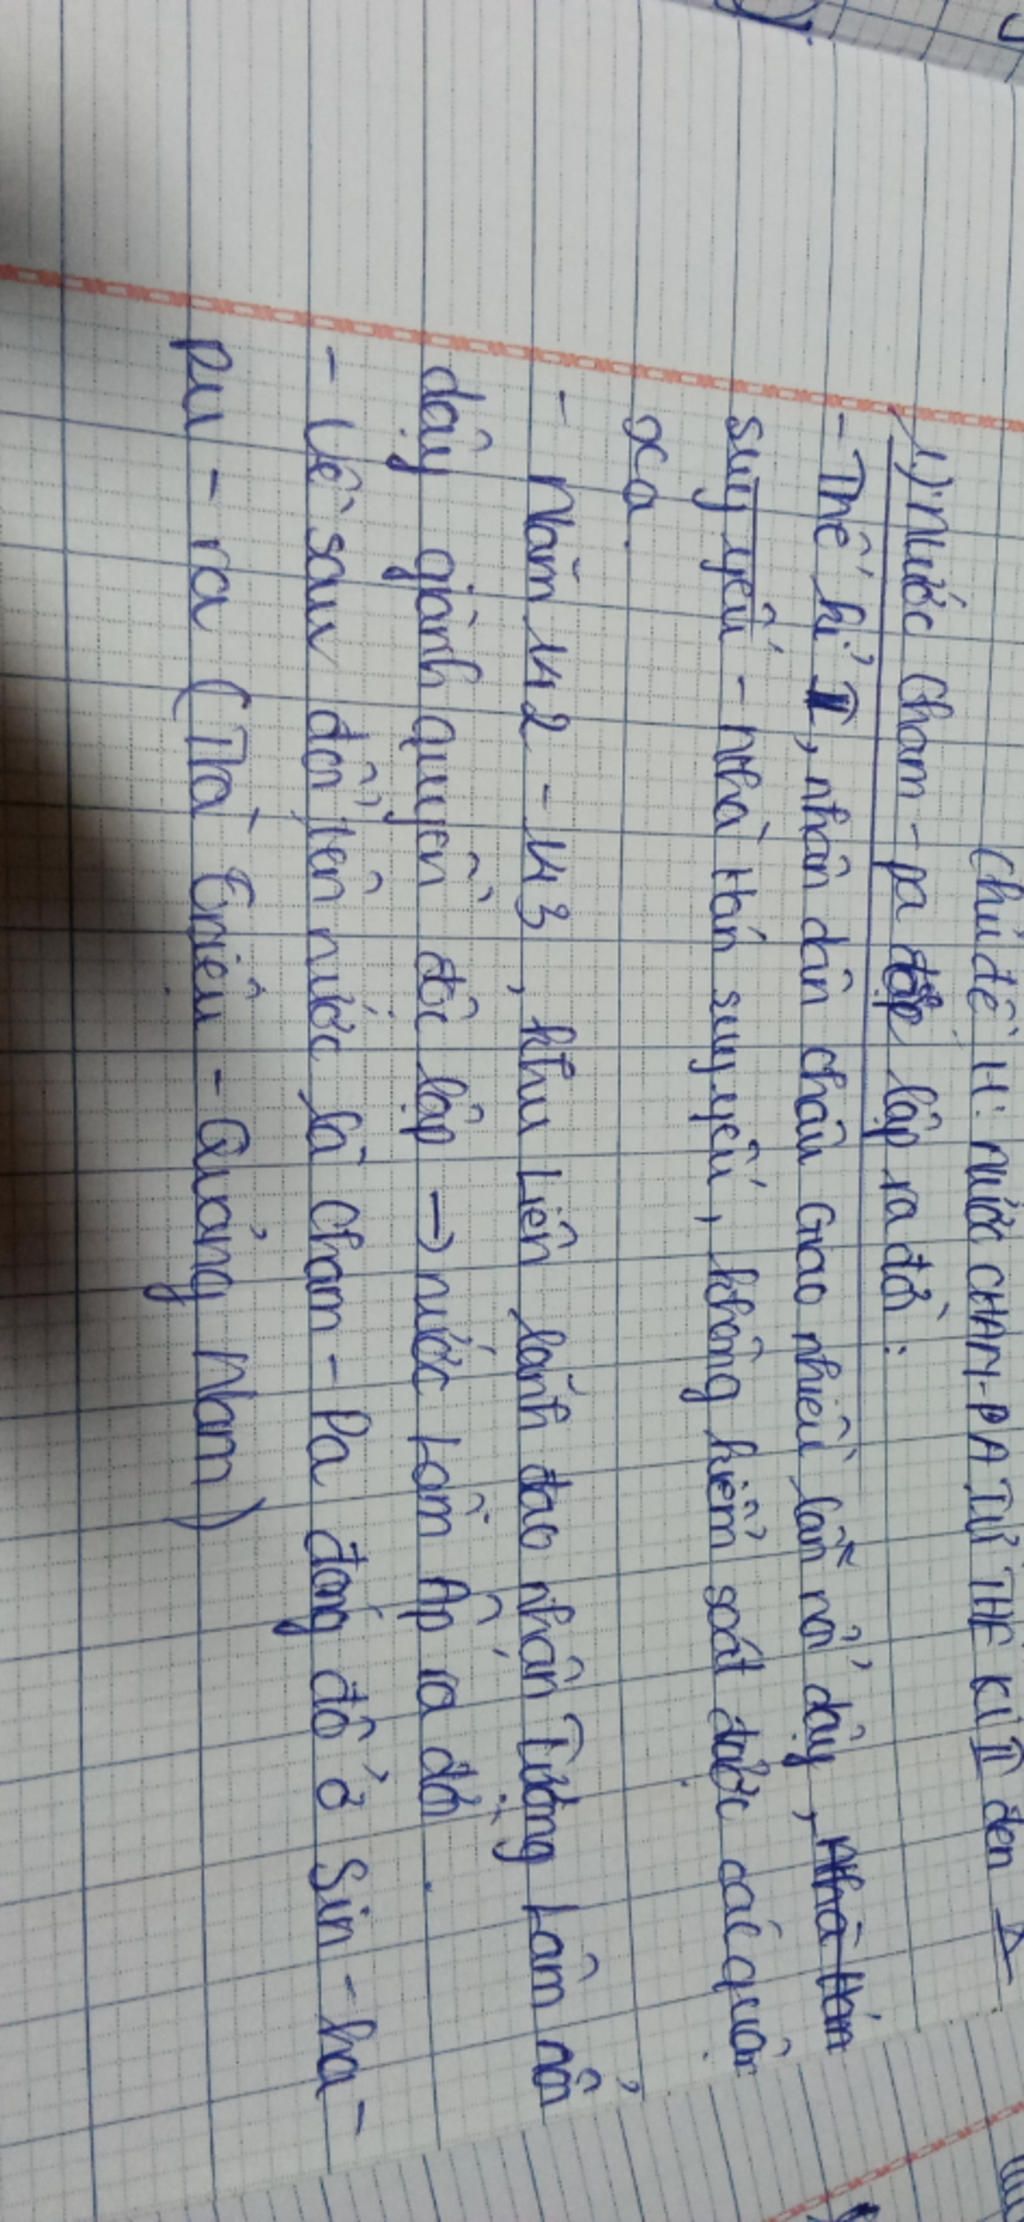 Chủ đề 4: NƯỚC CHAM-PA TỪ THẾ KỈ II đến X
1) Nước Cham-pa lập ra đời:
- Thế kỉ II, nhân dân châu Giao nhiều lần nổi dậy, Nhà Hán
suy yếu - Nhà Hán suy yếu, không kiểm soát được các quận
xa.
- Năm 142 - 143, Khu Liên lãnh đạo nhân Tượng Lâm nổi
dậy giành quyền độc lập → nước Lâm Ấp ra đời.
- Về sau đổi tên nước là Cham-Pa đóng đô ở Sin-ha-
pu-ra (Trà Triệu - Quảng Nam)